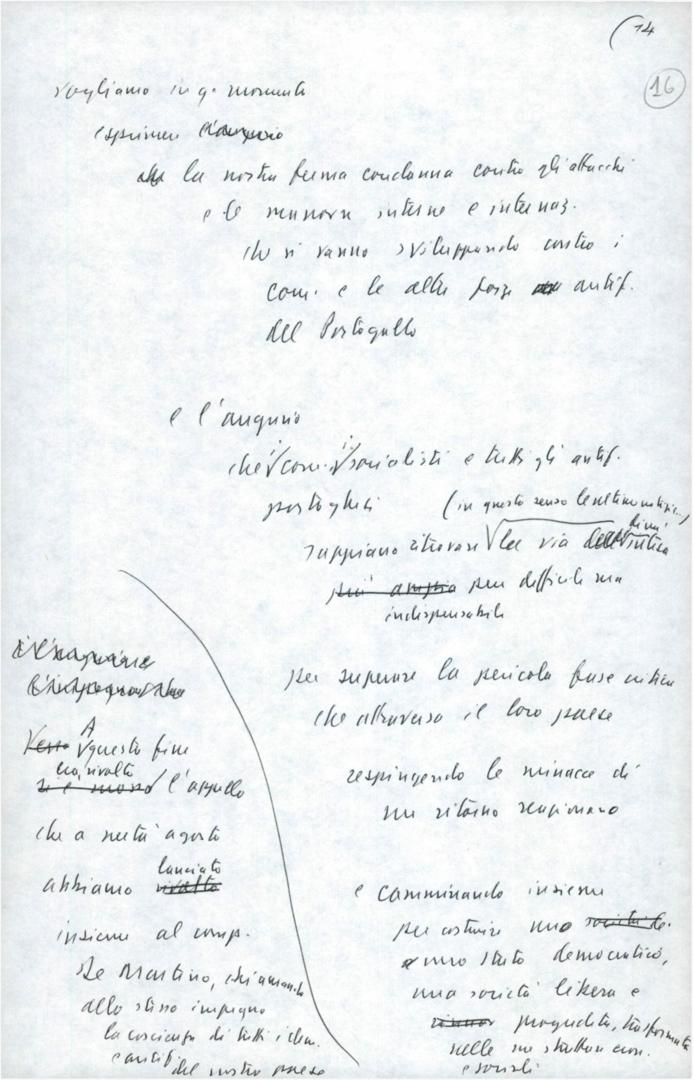 14
16
vogliamo in q. momento
esprimere
la nostra ferma condanna contro gli attacchi
e le manovre interne e internaz.
che si vanno sviluppando contro i
com. e le altre forze antif.
del Portogallo
e l'augurio
che i com. i socialisti e tutti gli antif.
portoghesi
(in questo senso le ultime notizie)
sappiano ritrovare la via dell'intesa
più ampia pur difficile ma
indispensabile
per superare la pericolosa fase critica
che attraversa il loro paese
respingendo le minacce di
un ritorno reazionario
e camminando insieme
per costruire uno società de.
uno stato democratico,
una società libera e
progredita, trasformata
nelle sue strutture econ.
e sociali
A
questo fine
era rivolto
si è mosso l'appello
che a metà agosto
lanciato
abbiamo rivolto
insieme al comp.
De Martino, chiamando
allo stesso impegno
la coscienza di tutti i dem.
e antif.
del nostro paese